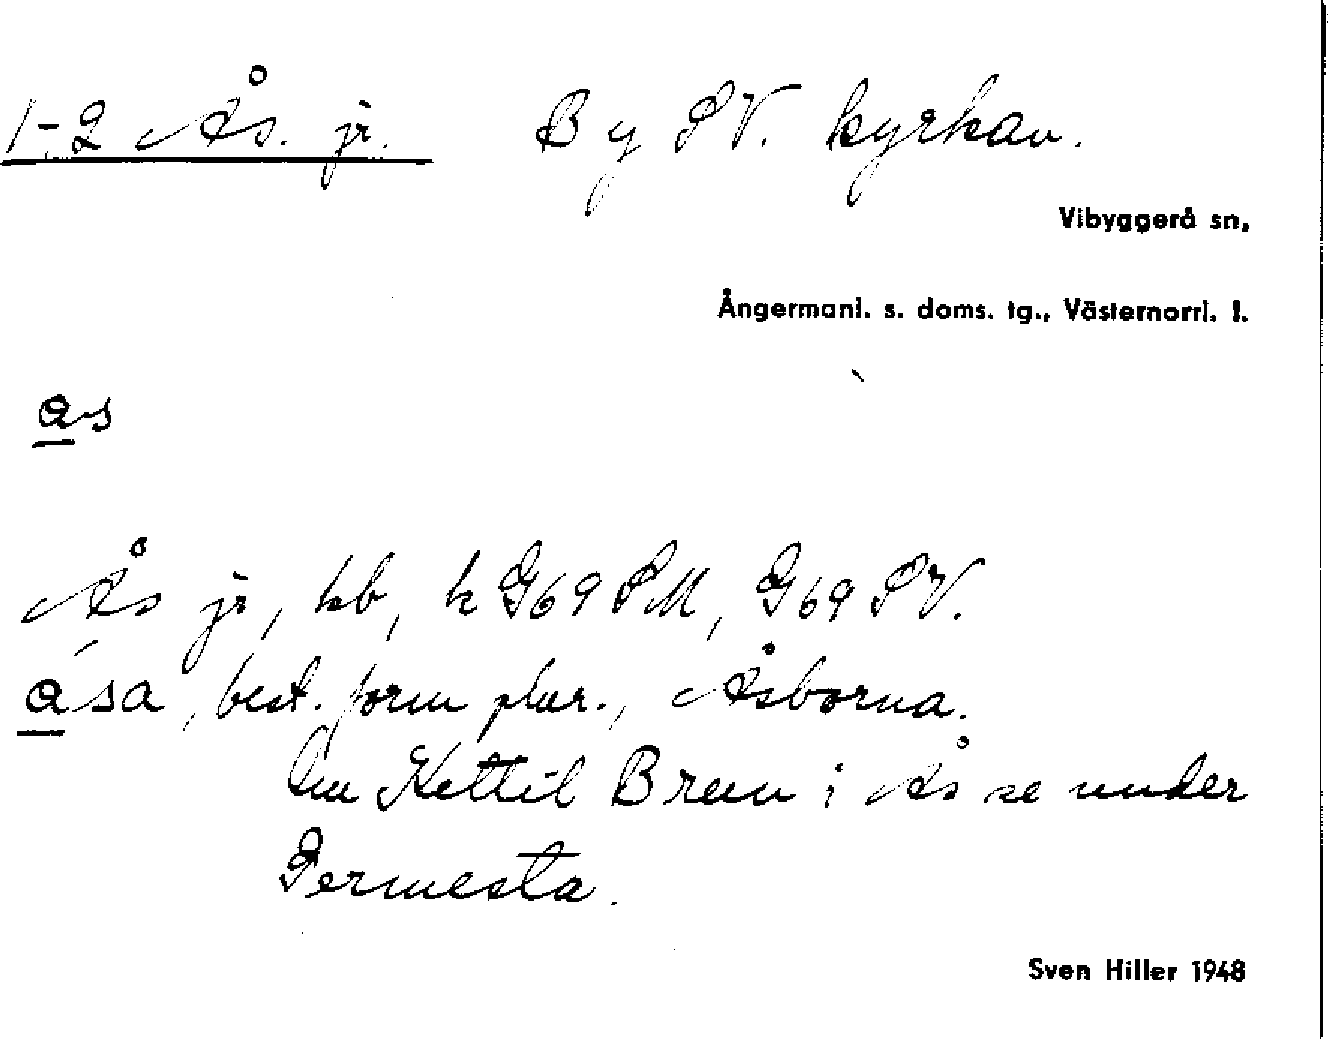 1-2 Ås. jr. By SV. kyrkan.
Vibyggerå sn,
Ångermanl. s. doms. tg., Västernorrl. l.
as
Ås jr, kb, k G69 SM, G69 SV.
ása, best. form plur., Åsborna.
Om Kettil Bruu i Ås se under
Germesta.
Sven Hiller 1948